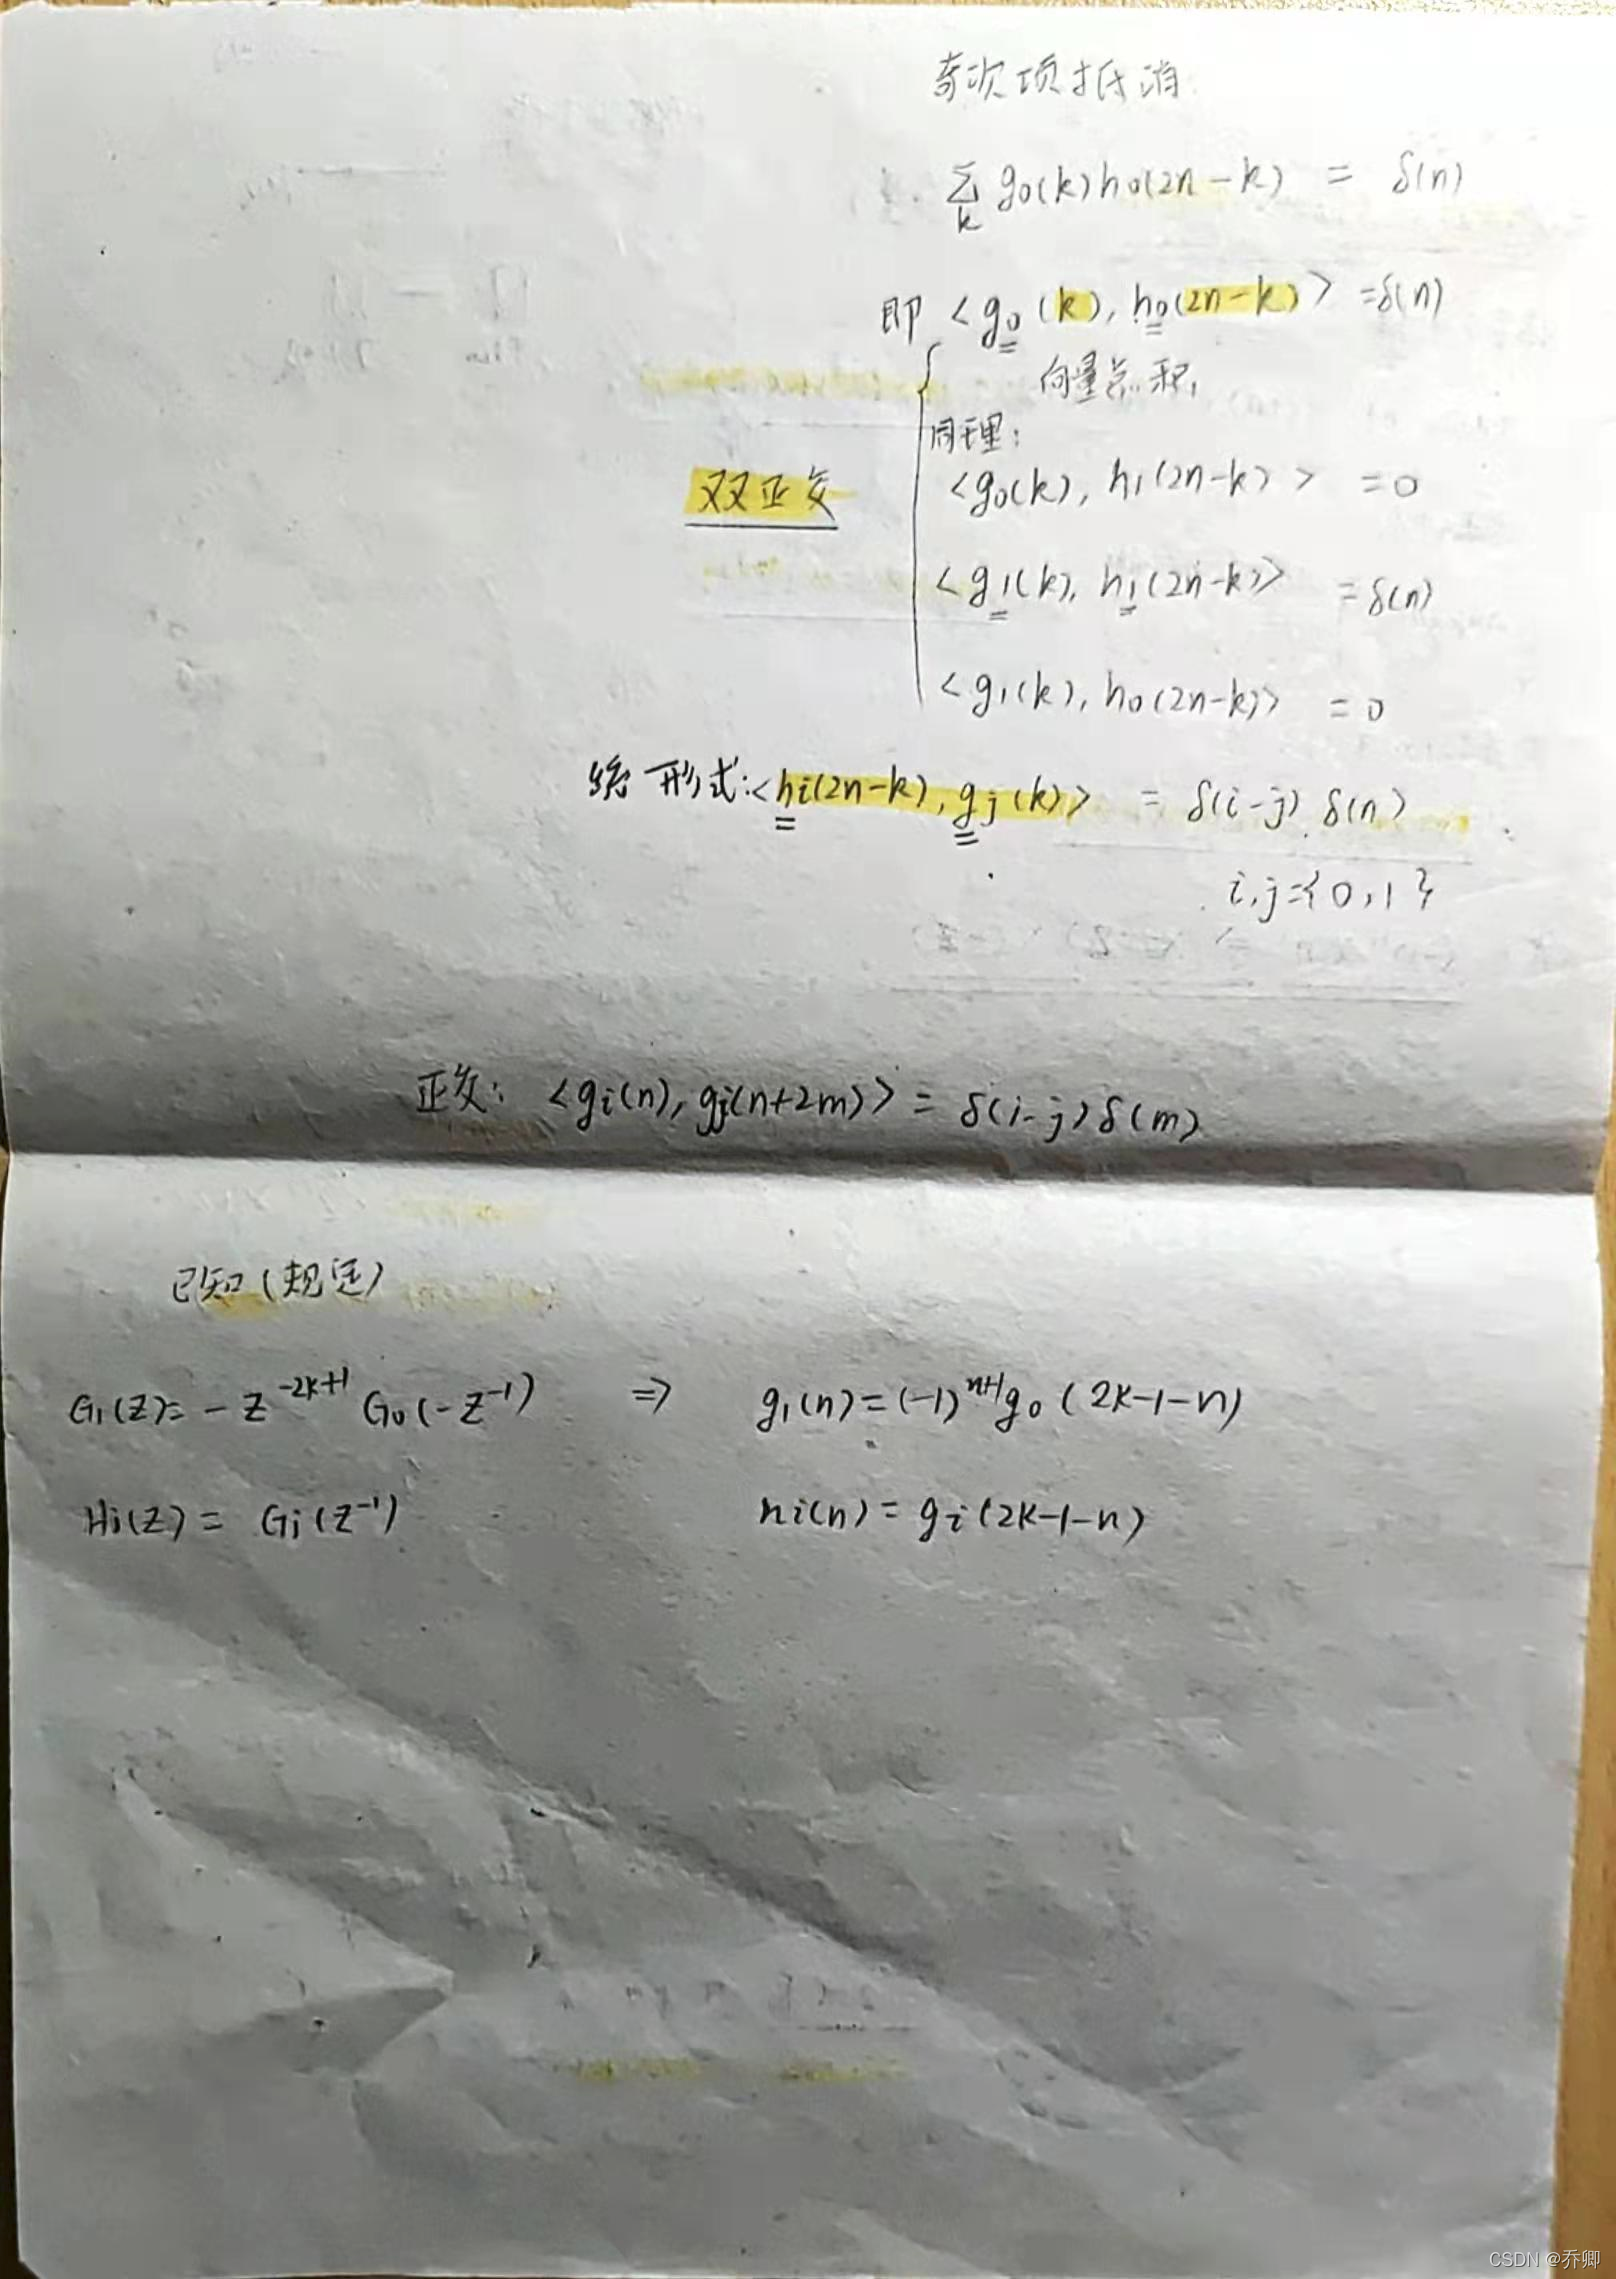 奇次项抵消
∑ g₀(k) h₀(2n-k) = δ(n)
k
即 <g₀(k), h₀(2n-k)> =δ(n)
向量点积
同理:
<g₀(k), h₁(2n-k)> = 0
双正交
<g₁(k), h₁(2n-k)> = δ(n)
<g₁(k), h₀(2n-k)> = 0
形式:<hi(2n-k), gj(k)> = δ(i-j) δ(n)
i,j={0,1}
正交: <gi(n), gj(n+2m)> = δ(i-j)δ(m)
已知(规定)
G₁(Z)= -Z^(-2K+1) G₀(-Z^(-1)) ⇒ g₁(n)=(-1)^(n+1) g₀(2K-1-n)
Hi(Z) = Gi(Z^(-1)) hi(n) = gi(2K-1-n)
CSDN @乔卿